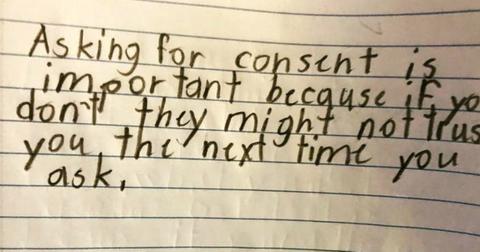 Asking for consent is
important because if yo
don't they might not trus
you, the next time you
ask.